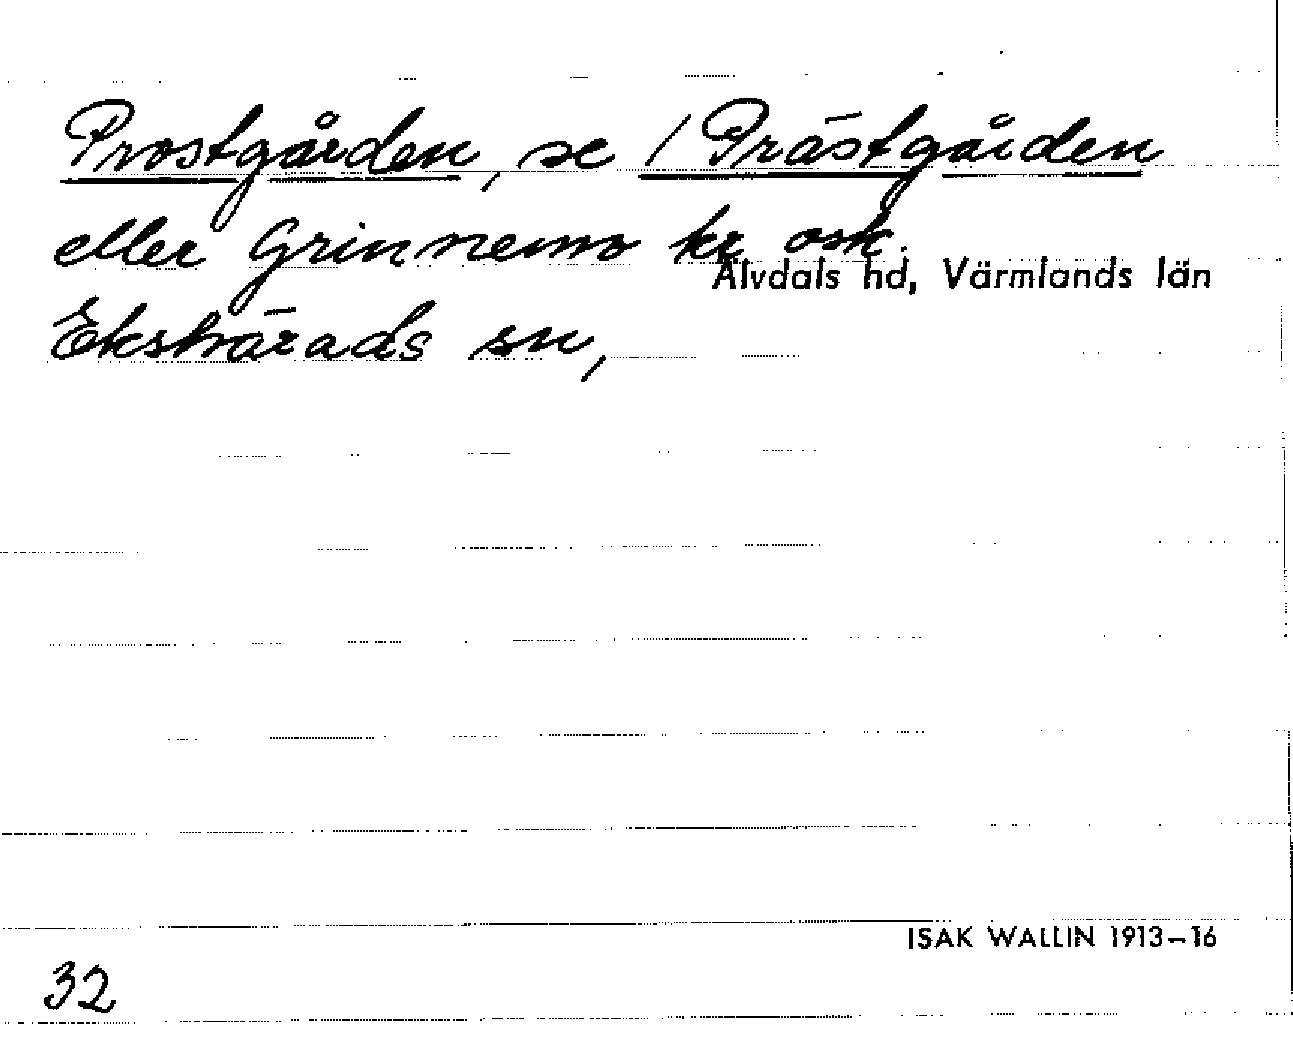 Prostgården, se / Prästgården
eller Grinnemo kr osk.
Älvdals hd, Värmlands län
Ekshärads sn,
ISAK WALLIN 1913-16
32